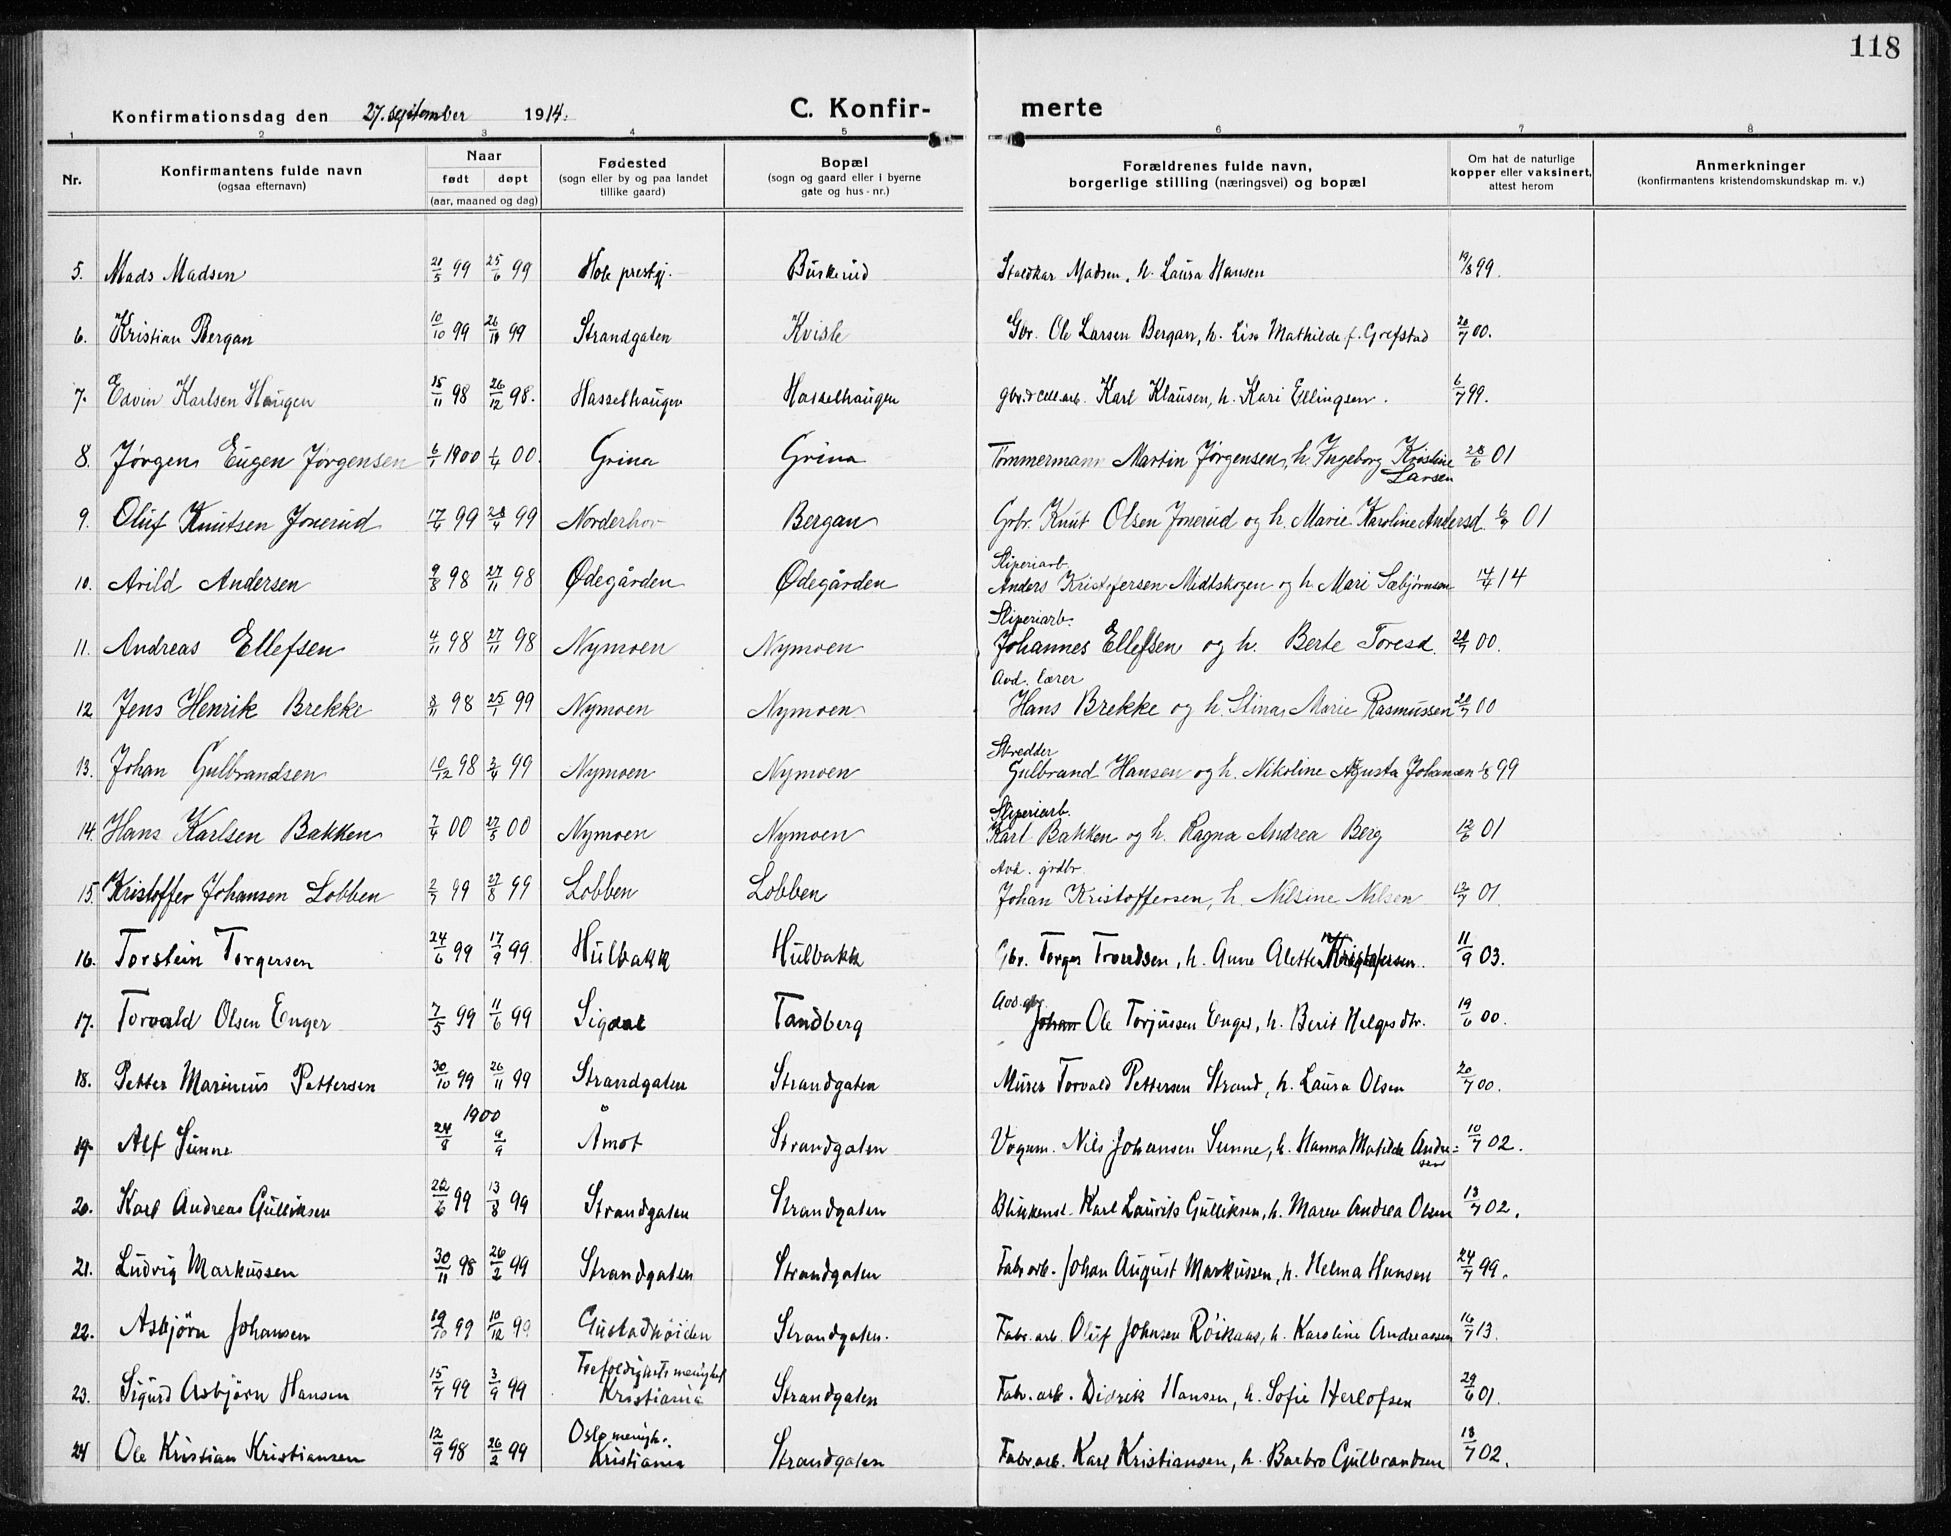 118
Konfirmationsdag den 27. september 1914. C. Konfir- merte
1 2 3 4 5 6 7 8
Nr. Konfirmantens fulde navn (ogsaa efternavn) Naar født døpt (aar, maaned og dag) Fødested (sogn eller by og paa landet tillike gaard) Bopæl (sogn og gaard eller i byerne gate og hus-nr.) Forældrenes fulde navn, borgerlige stilling (næringsvei) og bopæl Om hat de naturlige kopper eller vaksinert, attest herom Anmerkninger (konfirmantens kristendomskundskap m. v.)
5. Mads Madsen 21/5 99 25/6 99 Hole prestgj. Buskerud Madsen, h. Laura Hansen 19/8 99.
6. Kristian Bergan 10/10 99 26/ 99 Strandgaten Kvisle Gbr. Ole Larsen Bergan, h. Lise Mathilde f. Grefstad 20/7 00.
7. Edvin Karlsen Haugen 15/11 98 26/12 98. Hasselhaugen Hasselhaugen gbr. & cell.arb. Karl Klausen, h. Kari Ellingsen. 6/7 99.
8. Jørgen Eugen Jørgensen 6/1 1900 1/4 00. Grina Grina Tømmermann Martin Jørgensen, h. Ingeborg Kristine Larsen 28/6 01
9. Oluf Knutsen Jonerud 17/4 99 28/4 99 Norderhov Bergan Gbr. Knut Olsen Jonerud og h. Marie Karoline Andersd. 01
Sliperiarb.
10. Arild Andersen 9/8 98 27/11 98 Ødegården Ødegården Anders Kristofersen Midtskogen og h. Mari Sæbjørnsen 14/4 14
Sliperiarb.
11. Andreas Ellefsen 4/11 98 27/11 98 Nymoen Nymoen Johannes Ellefsen og h. Berte Toresd. 20/7 00.
Avd. lærer
12 Jens Henrik Brekke 8/11 98 25/1 99 Nymoen Nymoen Hans Brekke og h. Stina Marie Rasmussen 20/7 00
Skredder
13. Johan Gulbrandsen 10/12 98 3/4 99 Nymoen Nymoen Gulbrand Hansen og h. Nikoline Agusta Johansen 99
Sliperiarb.
14. Hans Karlsen Bakken 7/4 00 27/5 00 Nymoen Nymoen Karl Bakken og h. Ragna Andrea Berg 12/6 01
Avd. grdbr
15. Kristoffer Johansen Lobben 2/7 99 27/8 99 Lobben Lobben Johan Kristoffersen, h. Nilsine Nilsen 12/7 01.
16. Torstein Torgersen 24/6 99 17/9 99. Hulbakk Hulbakk Gbr. Torger Trondsen, h. Anne Alette Kristofersen. 11/9 03.
Avd. gbr.
17. Torvald Olsen Enger 7/5 99 11/6 99 Sigdal Tandberg Johan Ole Torjussen Enger, h. Berit Helgesdtr. 19/6 00.
18. Petter Marinius Pettersen 30/10 99 26/11 99 Strandgaten Strandgaten Murer Torvald Pettersen Strand, h. Laura Olsen 20/7 00.
19. Alf Sunne 24/8 1900 9/9 Åmot Strandgaten Vognm. Nils Johansen Sunne, h. Hanna Matilde Andresen 10/7 02.
20. Karl Andreas Gulliksen 22/6 99 13/8 99 Strandgaten Strandgaten Blikkensl. Karl Laurits Gulliksen, h. Maren Andrea Olsen 18/7 02.
21. Ludvig Markussen 30/11 98 26/2 99 Strandgaten Strandgaten Fabr.arb. Johan August Markussen, h. Helma Hansen 24/7 99.
22. Asbjörn Johansen 19/10 99 10/12 99 Gustadhöiden Strandgaten. Fabr.arb. Oluf Johnsen Röikaas, h. Karoline Andreassen 16/7 13.
23. Sigurd Asbjörn Hansen 15/7 99 3/9 99 Trefoldighets menighet Kristiania Strandgaten Fabr.arb. Didrik Hansen, h. Sofie Herlofsen 29/6 01.
24 Ole Kristian Kristiansen 12/9 98 26/2 99 Oslo menigh. Kristiania Strandgaten Fabr.arb. Karl Kristiansen, h. Barbro Gulbrandsen 18/7 02.